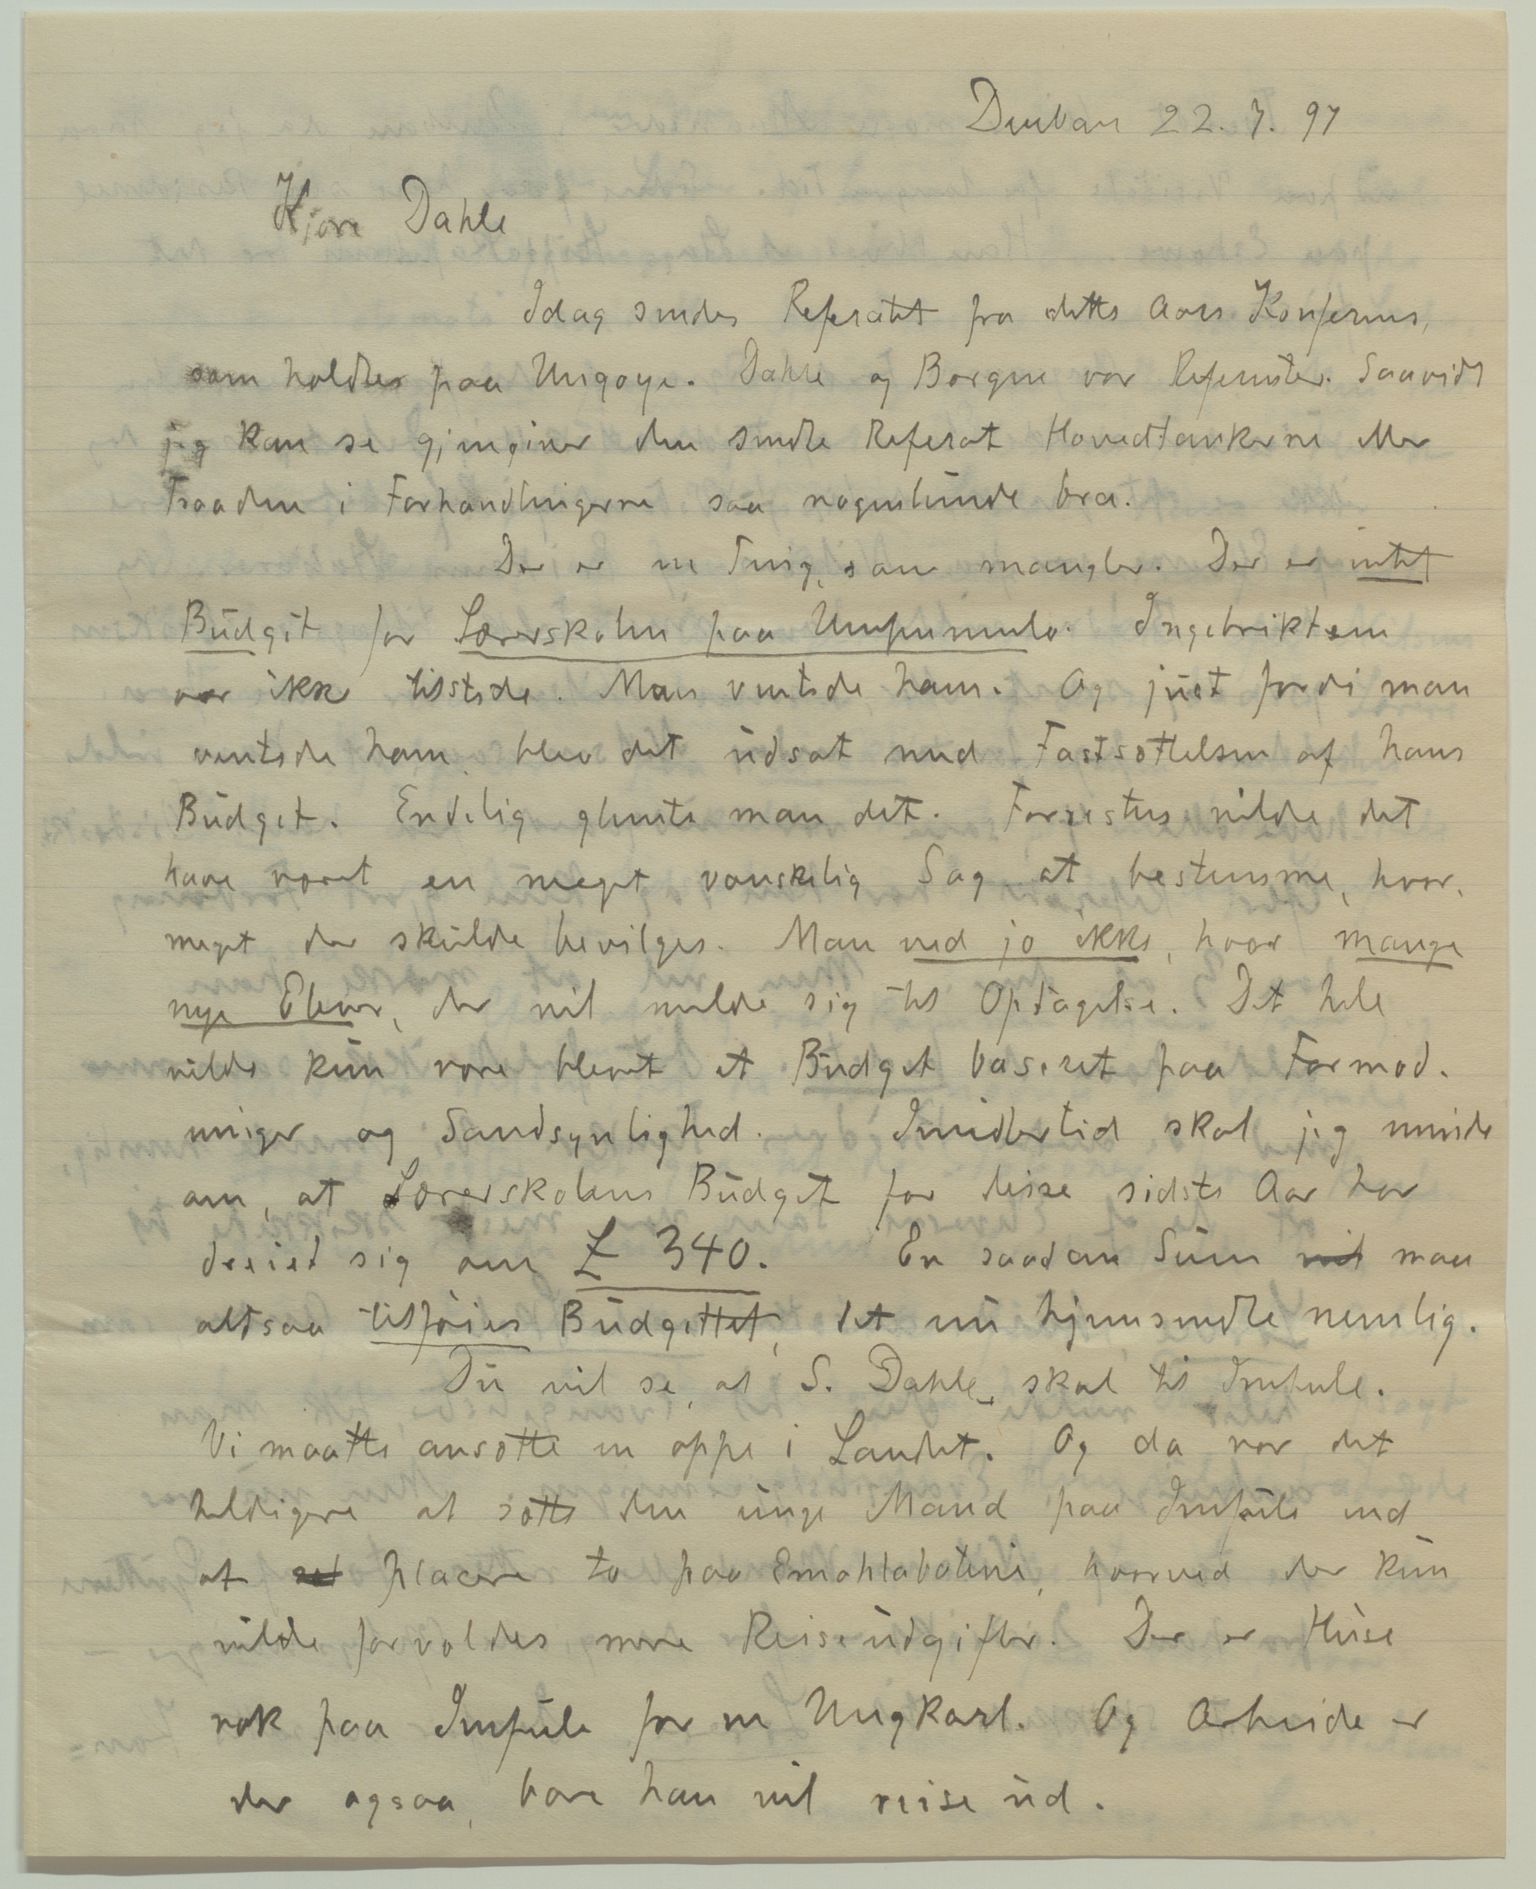 Durban 22. 7. 97
Kjære Dahle
Idag sendes Referatet fra dette Aars Konferens,
som holdtes paa Ungoye. Dahle og Borgen var Referenter. Saavidt
jeg kan se gjengiver den sendte Referat Hovedtankerne eller
Traaden i Forhandlingerne saa nogenlunde bra.
Der er en Ting, som mangler. Der er intet
Budget for Lærerskolen paa Umpumulo. Ingebriktsen
var ikke tilstede. Man ventede ham. Og just fordi man
ventede ham, blev det udsat med Fastsættelsen af hans
Budget. Endelig glemte man det. Forresten vilde det
have været en meget vanskelig Sag at bestemme, hvor-
meget der skulde bevilges. Man ved jo ikke, hvor mange
nye Elever, der vil melde sig til Optagelse. Det hele
vilde kun være blevet et Budget baseret paa Formod-
ninger og Sandsynlighed. Imidlertid skal jeg minde
om, at Lærerskolens Budget for disse sidste Aar har
dreiet sig om £ 340. En saadan Sum vil maa
altsaa tilføies Budgettet, det nu hjemsendte nemlig.
Du vil se, at S. Dahle skal til Imfule.
Vi maatte ansætte en oppe i Landet. Og da var det
heldigere at sætte den unge Mand paa Imfule end
at placere to paa Emahlabatini, hvorved der kun
vilde forvoldes mere Reiseudgifter. Der er Huse
nok paa Imfule for en Ungkarl. Og Arbeide er
der ogsaa, bare han vil reise ud.